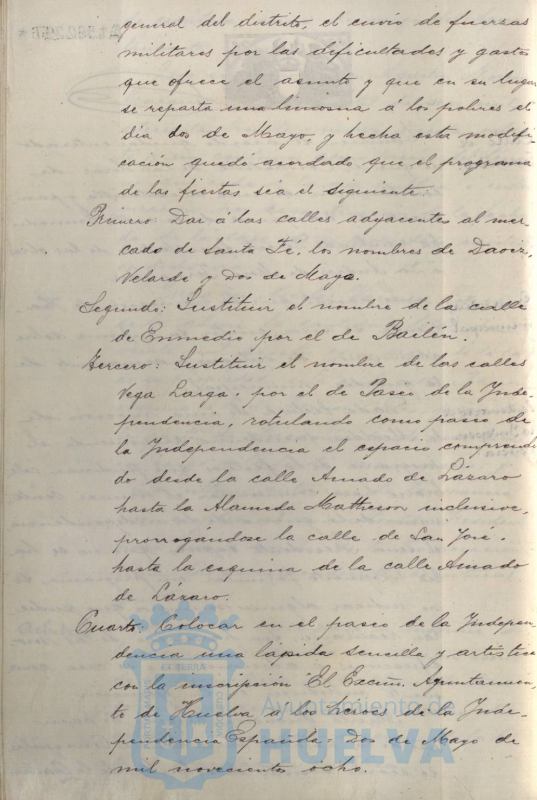 general del distrito, el envio de fuerzas
militares por las dificultades y gastos
que ofrece el asunto y que en su lugar
se reparta una limosna á los pobres el
dia dos de Mayo, y hecha esta modifi-
cación quedó acordado que el programa
de las fiestas sea el siguiente:
Primero: Dar á las calles adyacentes al mer-
cado de Santa Fé, los nombres de Daoiz,
Velarde y Dos de Mayo.
Segundo: Sustituir el nombre de la calle
de Enmedio por el de Bailén.
Tercero: Sustituir el nombre de las calles
Vega Larga, por el de Paseo de la Inde-
pendencia, rotulando como paseo de
la Independencia el espacio comprendi-
do desde la calle Amado de Lázaro
hasta la Alameda Matheson inclusive,
prorrogándose la calle de San José,
hasta la esquina de la calle Amado
de Lázaro.
Cuarto: Colocar en el paseo de la Indepen-
dencia una lápida sencilla y artística
con la inscripción "El Excmo. Ayuntamien-
to de Huelva a los héroes de la Inde-
pendencia Española, Dos de Mayo de
mil novecientos ocho.
Ayuntamiento de
HUELVA